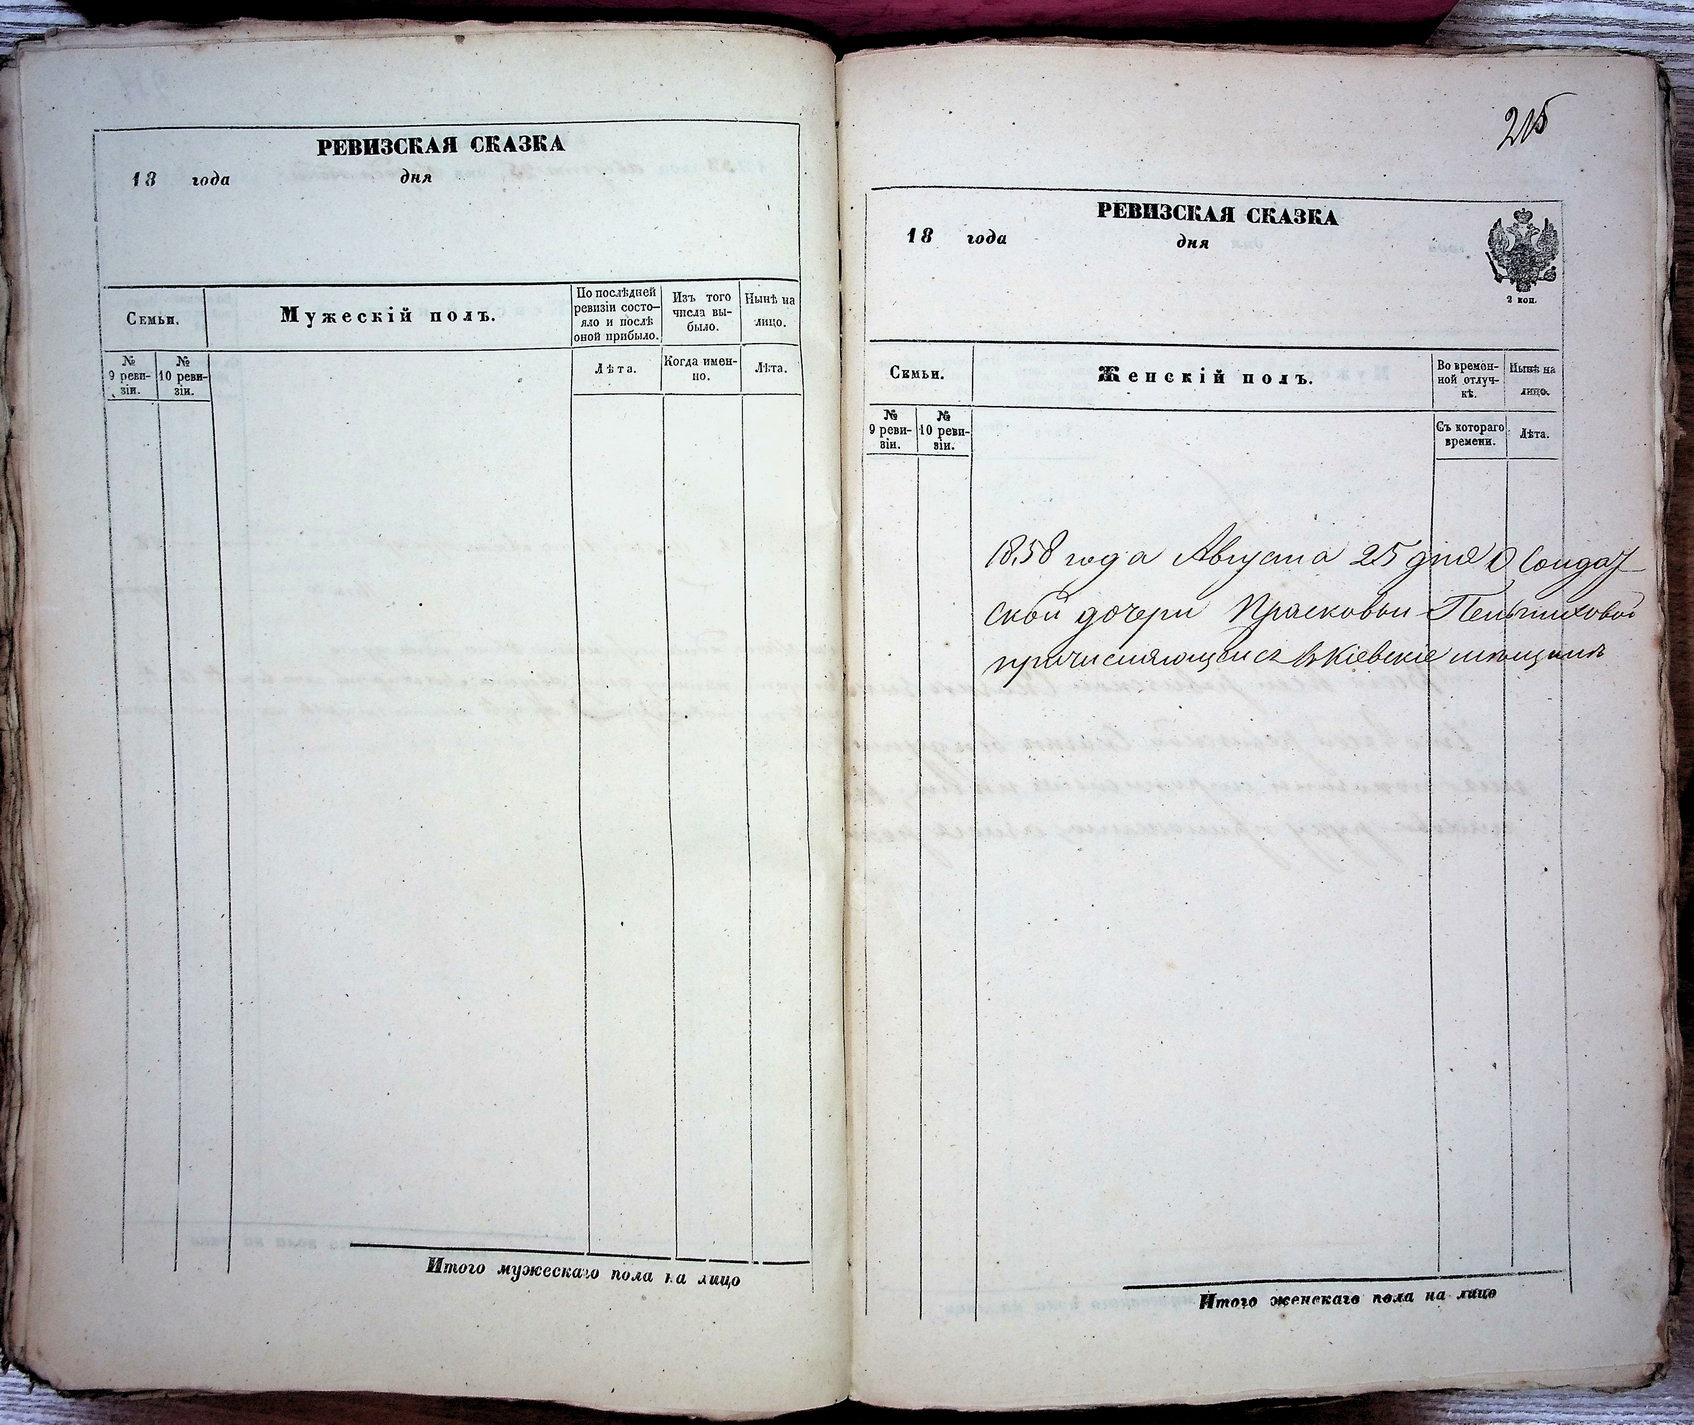 РЕВИЗСКАЯ СКАЗКА
18 года дня
Семьи.
Мужескій полъ.
По послѣдней ревизіи состо-
яло и послѣ
оной прибыло.
Изъ того
числа вы-
было.
Нынѣ на
лицо.
№
9 реви-
зіи.
№
10 реви-
зіи.
Лѣта.
Когда имен-
но.
Лѣта.
Итого мужескаго пола на лицо
215
РЕВИЗСКАЯ СКАЗКА
18 года дня
2 коп.
Семьи.
Женскій полъ.
Во времен-
ной отлуч-
кѣ.
Нынѣ на
лицо.
№
9 реви-
зіи.
№
10 реви-
зіи.
Съ котораго
времени.
Лѣта.
1858 года Августа 25 дня О Солдат
ской дочери Прасковьи
причисляющейся въ Кіевскіе мѣщане
Итого женскаго пола на лицо